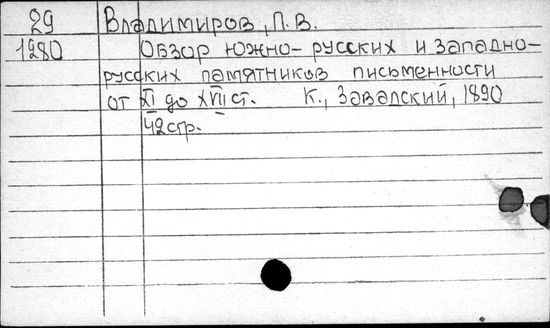 29 Владимиров, П. В.
1280 Обзор южно-русских и западно-
русских памятников письменности
от XI до XVII ст. К., Завадский, 1890
42стр.